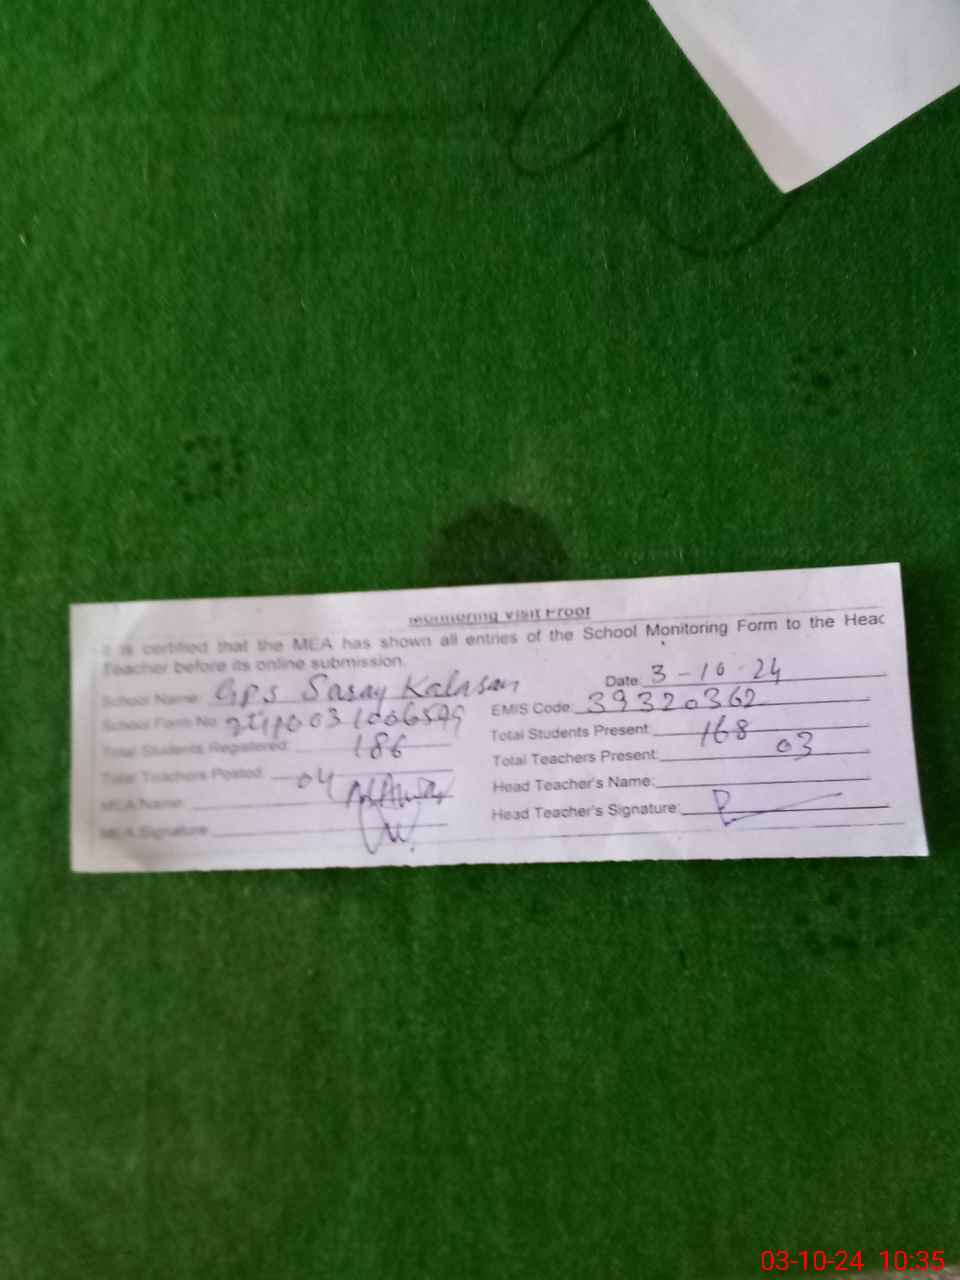 Monitoring Visit Proof
It is certified that the MEA has shown all entries of the School Monitoring Form to the Head
Teacher before its online submission.
School Name: GPS Saray Kalasan Date: 3-10-24
School Form No: EMIS Code: 39320362
Total Students Registered: 186 Total Students Present: 168
Total Teachers Posted: 04 Total Teachers Present: 03
MEA Name: Head Teacher's Name:
MEA Signature: Head Teacher's Signature:
03-10-24 10:35